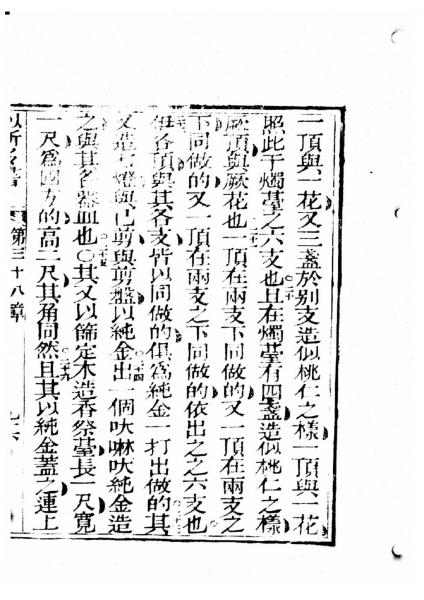 一頂與一花又三盞於別支造似桃仁之樣一頂與一花
照此于燭臺之六支也且在燭臺有四盞造似桃仁之樣
厥頂與厥花也一頂在兩支下同做的又一頂在兩支之
下同做的又一頂在兩支之下同做的依出之之六支也
伊各頂與其各支皆以同做的俱為純金一打出做的其
又造七燈與己剪與剪盤以純金出一個呔啉呔純金造
之與其各器皿也〇其又以篩定木造香祭臺長一尺寬
一尺為四方的高二尺其角同然且其以純金蓋之連上
第三十八章